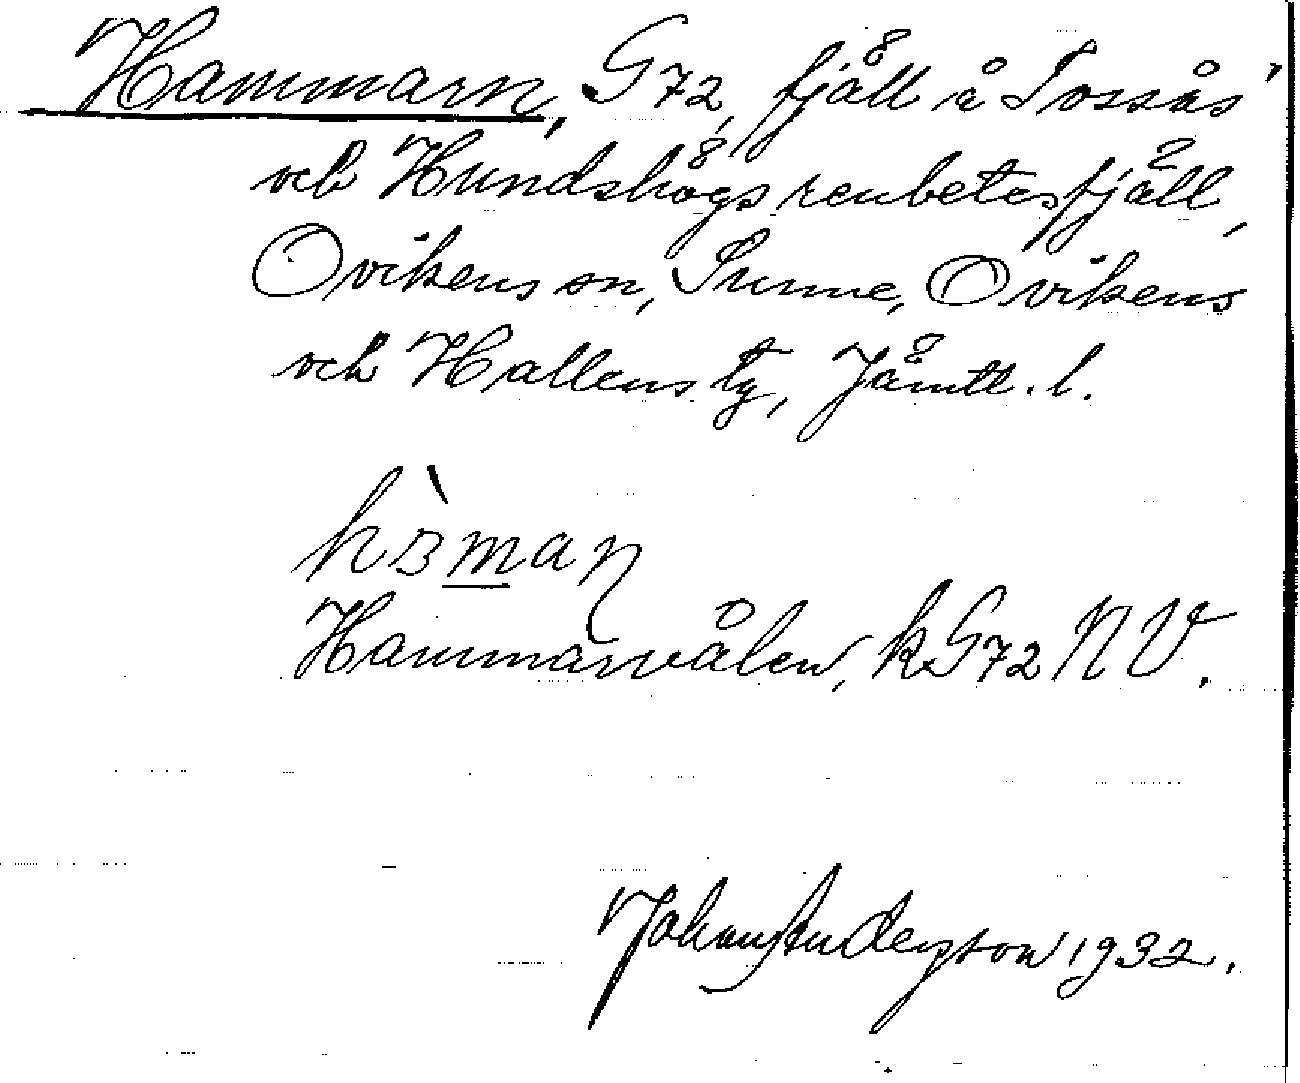 Hammarn, G72, fjäll å Tossås'
och Hundshögs renbetesfjäll,
Ovikens sn, Sunne, Ovikens
och Hallens tg, Jämtl. l.
hɜ̀man
Hammarvålen, k G72 NV.
Johans Anderson 1932.